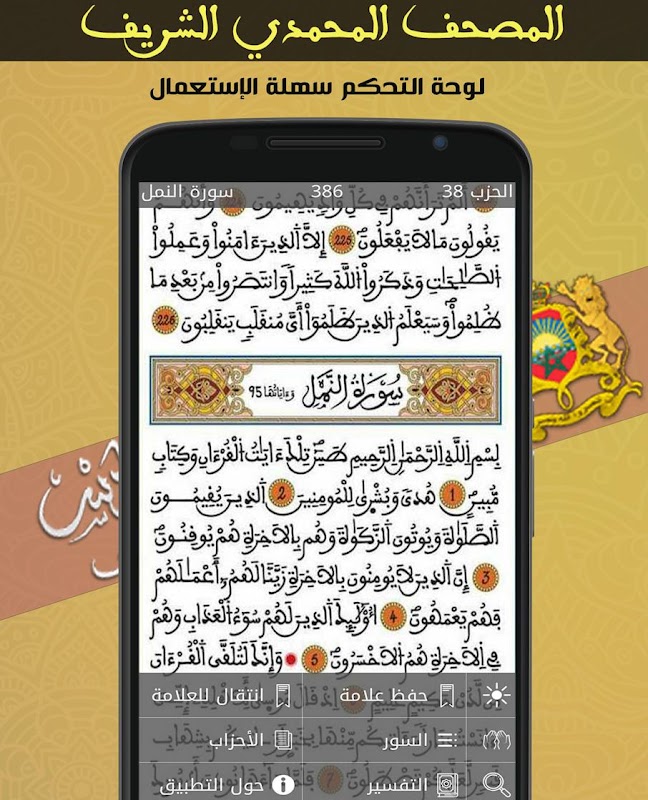 المصحف المحمدي الشريف
لوحة التحكم سهلة الإستعمال
الحزب 38 386 سورة النمل
أَلَمْ تَرَ أَنَّهُمْ فِي كُلِّ وَادٍ يَهِيمُونَ وَأَنَّهُمْ
يَقُولُونَ مَا لَا يَفْعَلُونَ 225 إِلَّا الَّذِينَ ءَامَنُوا وَعَمِلُوا
الصَّالِحَاتِ وَذَكَرُوا اللَّهَ كَثِيرًا وَانتَصَرُوا مِنْ بَعْدِ مَا
ظُلِمُوا وَسَيَعْلَمُ الَّذِينَ ظَلَمُوا أَيَّ مُنقَلَبٍ يَنقَلِبُونَ 226
سُورَةُ النَّمْلِ وَءَايَاتُهَا 95
بِسْمِ اللَّهِ الرَّحْمَٰنِ الرَّحِيمِ طَسِ تِلْكَ ءَايَٰتُ الْقُرْءَانِ وَكِتَابٍ
مُّبِينٍ 1 هُدًى وَبُشْرَىٰ لِلْمُومِنِينَ 2 الَّذِينَ يُقِيمُونَ
الصَّلَوٰةَ وَيُوتُونَ الزَّكَوٰةَ وَهُم بِالَاخِرَةِ هُمْ يُوقِنُونَ
3 إِنَّ الَّذِينَ لَا يُومِنُونَ بِالَاخِرَةِ زَيَّنَّا لَهُمُ أَعْمَٰلَهُمْ
فَهُمْ يَعْمَهُونَ 4 أُوْلَٰئِكَ الَّذِينَ لَهُمْ سُوءُ الْعَذَابِ وَهُمْ
فِي الَاخِرَةِ هُمُ الَاخْسَرُونَ 5 وَإِنَّكَ لَتُلَقَّى الْقُرْءَانَ
حفظ علامة
انتقال للعلامة
السور
الأحزاب
التفسير
حول التطبيق